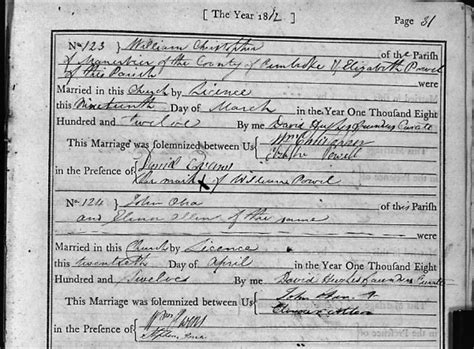 [ The Year 1812 ]
Page 31
No. 123 William Christopher of the Parish
of Manorbier of the County of Pembroke & Elizabeth Powel
of this Parish were
Married in this Church by Licence
this Nineteenth Day of March in the Year One Thousand Eight
Hundred and twelve By me David Hughes Curate
This Marriage was solemnized between Us
Powel
in the Presence of David
the mark X of William Powel
No. 124 John of the Parish
and Elinor Allen of the same
were
Married in this Church by Licence
this twentieth Day of April in the Year One Thousand Eight
Hundred and Twelve By me David Hughes Curate
This Marriage was solemnized between Us John
in the Presence of Wm